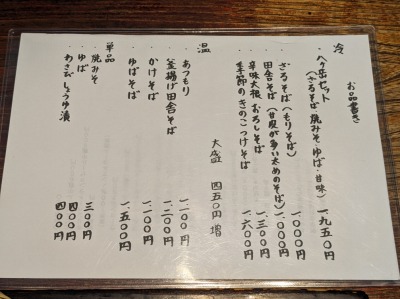 お品書き
冷
・八ヶ岳セット
(ざるそば 焼みそ・ゆば・甘味) 一、九五〇円
・ざるそば(もりそば) 一、〇〇〇円
・田舎そば(甘皮が多い太めのそば) 一、〇〇〇円
・辛味大根おろしそば 一、三〇〇円
・季節のきのこつけそば 一、六〇〇円
大盛 四五〇円増
温
・あつもり
釜揚げ田舎そば 一、二〇〇円
・かけそば 一、一〇〇円
・ゆばそば 一、五〇〇円
単品
・焼みそ 三〇〇円
・ゆば 四〇〇円
・わさびしょうゆ漬 四〇〇円